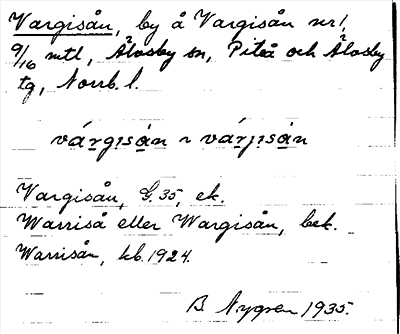 Vargisån, by å Vargisån nr 1,
9/16 mtl, Älvsby sn, Piteå och Älvsby
tg, Norrb. l.
várgısån ~ várjısån
Vargisån, G. 35, ek.
Warriså eller Wargisån, bek.
Warrisån, kb. 1924.
B. Nygren 1935.